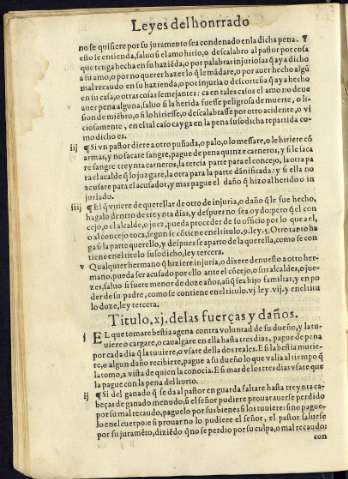 Leyes del honrrado
no se quisiere por su juramento sea condenado en la dicha pena. Y
esto se entienda, saluo si el amo hirio, o descalabro al pastor por cosa
que tenga hecha en su haziēda, o por palabras injuriosas q̄ aya dicho
a su amo, o por no querer hazer lo q̄ le mādare, o por auer hecho algū
mal recaudo en su hazienda, o por injuria, o descortesia q̄ aya hecho
en su casa, o otras cosas semejantes: ca en tales casos el amo no deue
auer pena alguna, saluo si la herida fuesse peligrosa de muerte, o li-
sion de miēbro, o si lo hiriesse, o descalabrasse por otro accidente, o vi
ciosamente, en el tal caso cayga en la pena susodicha repartida co-
mo dicho es.
iij ¶ Si vn pastor diere a otro puñada, o palo, o lo messare, o le hiriere cō
armas, y no sacare sangre, pague de pena quinze carneros, y si le saca
re sangre treynta carneros, la tercia parte para el concejo, la otra pa
ra el alcalde q̄ lo juzgare, la otra para la parte dānificada: y si ella no
acusare para el acusador, y mas pague el daño q̄ hizo al herido o in
juriado.
iiij ¶ El q̄ quiere de querellar de otro de injuria, o daño q̄ le fue hecho,
hagalo dentro de treynta dias, y despues no sea oydo: pero q̄ el con
cejo, o el alcalde, o juez, pueda proceder de su officio por lo que a el,
o al concejo toca, segun se cōtiene en el titulo. 9. ley. 5. Otro tanto ha
ga si la parte querello, y despues se aparto de la querella, como se con
tiene en el titulo susodicho, ley tercera.
v Qualquier hermano q̄ hiziere injuria, o dixere denuesto a otro her-
mano, pueda ser acusado por ello ante el cōcejo, o sus alcaldes, o jue-
zes, saluo si fuere menor de doze años, aūq̄ sea hijo familias, y en po
der de su padre, como se contiene en el titulo. vj. ley. vij. y en el titu
lo doze, ley tercera.
Titulo. xj. de las fuerças y daños.
j EL que tomare bestia agena contra voluntad de su dueño, y la tu-
uiere o cargare, o caualgare en ella hasta tres dias, pague de pena
por cada dia q̄ la tuuiere, o vsare della dos reales. E si la bestia murie-
re, o algun daño recibiere, pague a su dueño lo que valia al tiempo q̄
la tomo, a vista de quien la conocia. E si mas de los tres dias vsare que
la pague con la pena del horto.
ij ¶ Si del ganado q̄ se da al pastor en guarda faltare hasta treynta ca-
beças de ganado menudo, si el señor pudiere prouar auerse perdido
por su mal recaudo, paguelo por sus bienes si los tuuiere: sino pague-
lo en el cuerpo: e si prouar no lo pudiere el señor, el pastor saluese
por su juramēto, diziēdo q̄ no se perdio por su culpa, o mal recaudo:
con